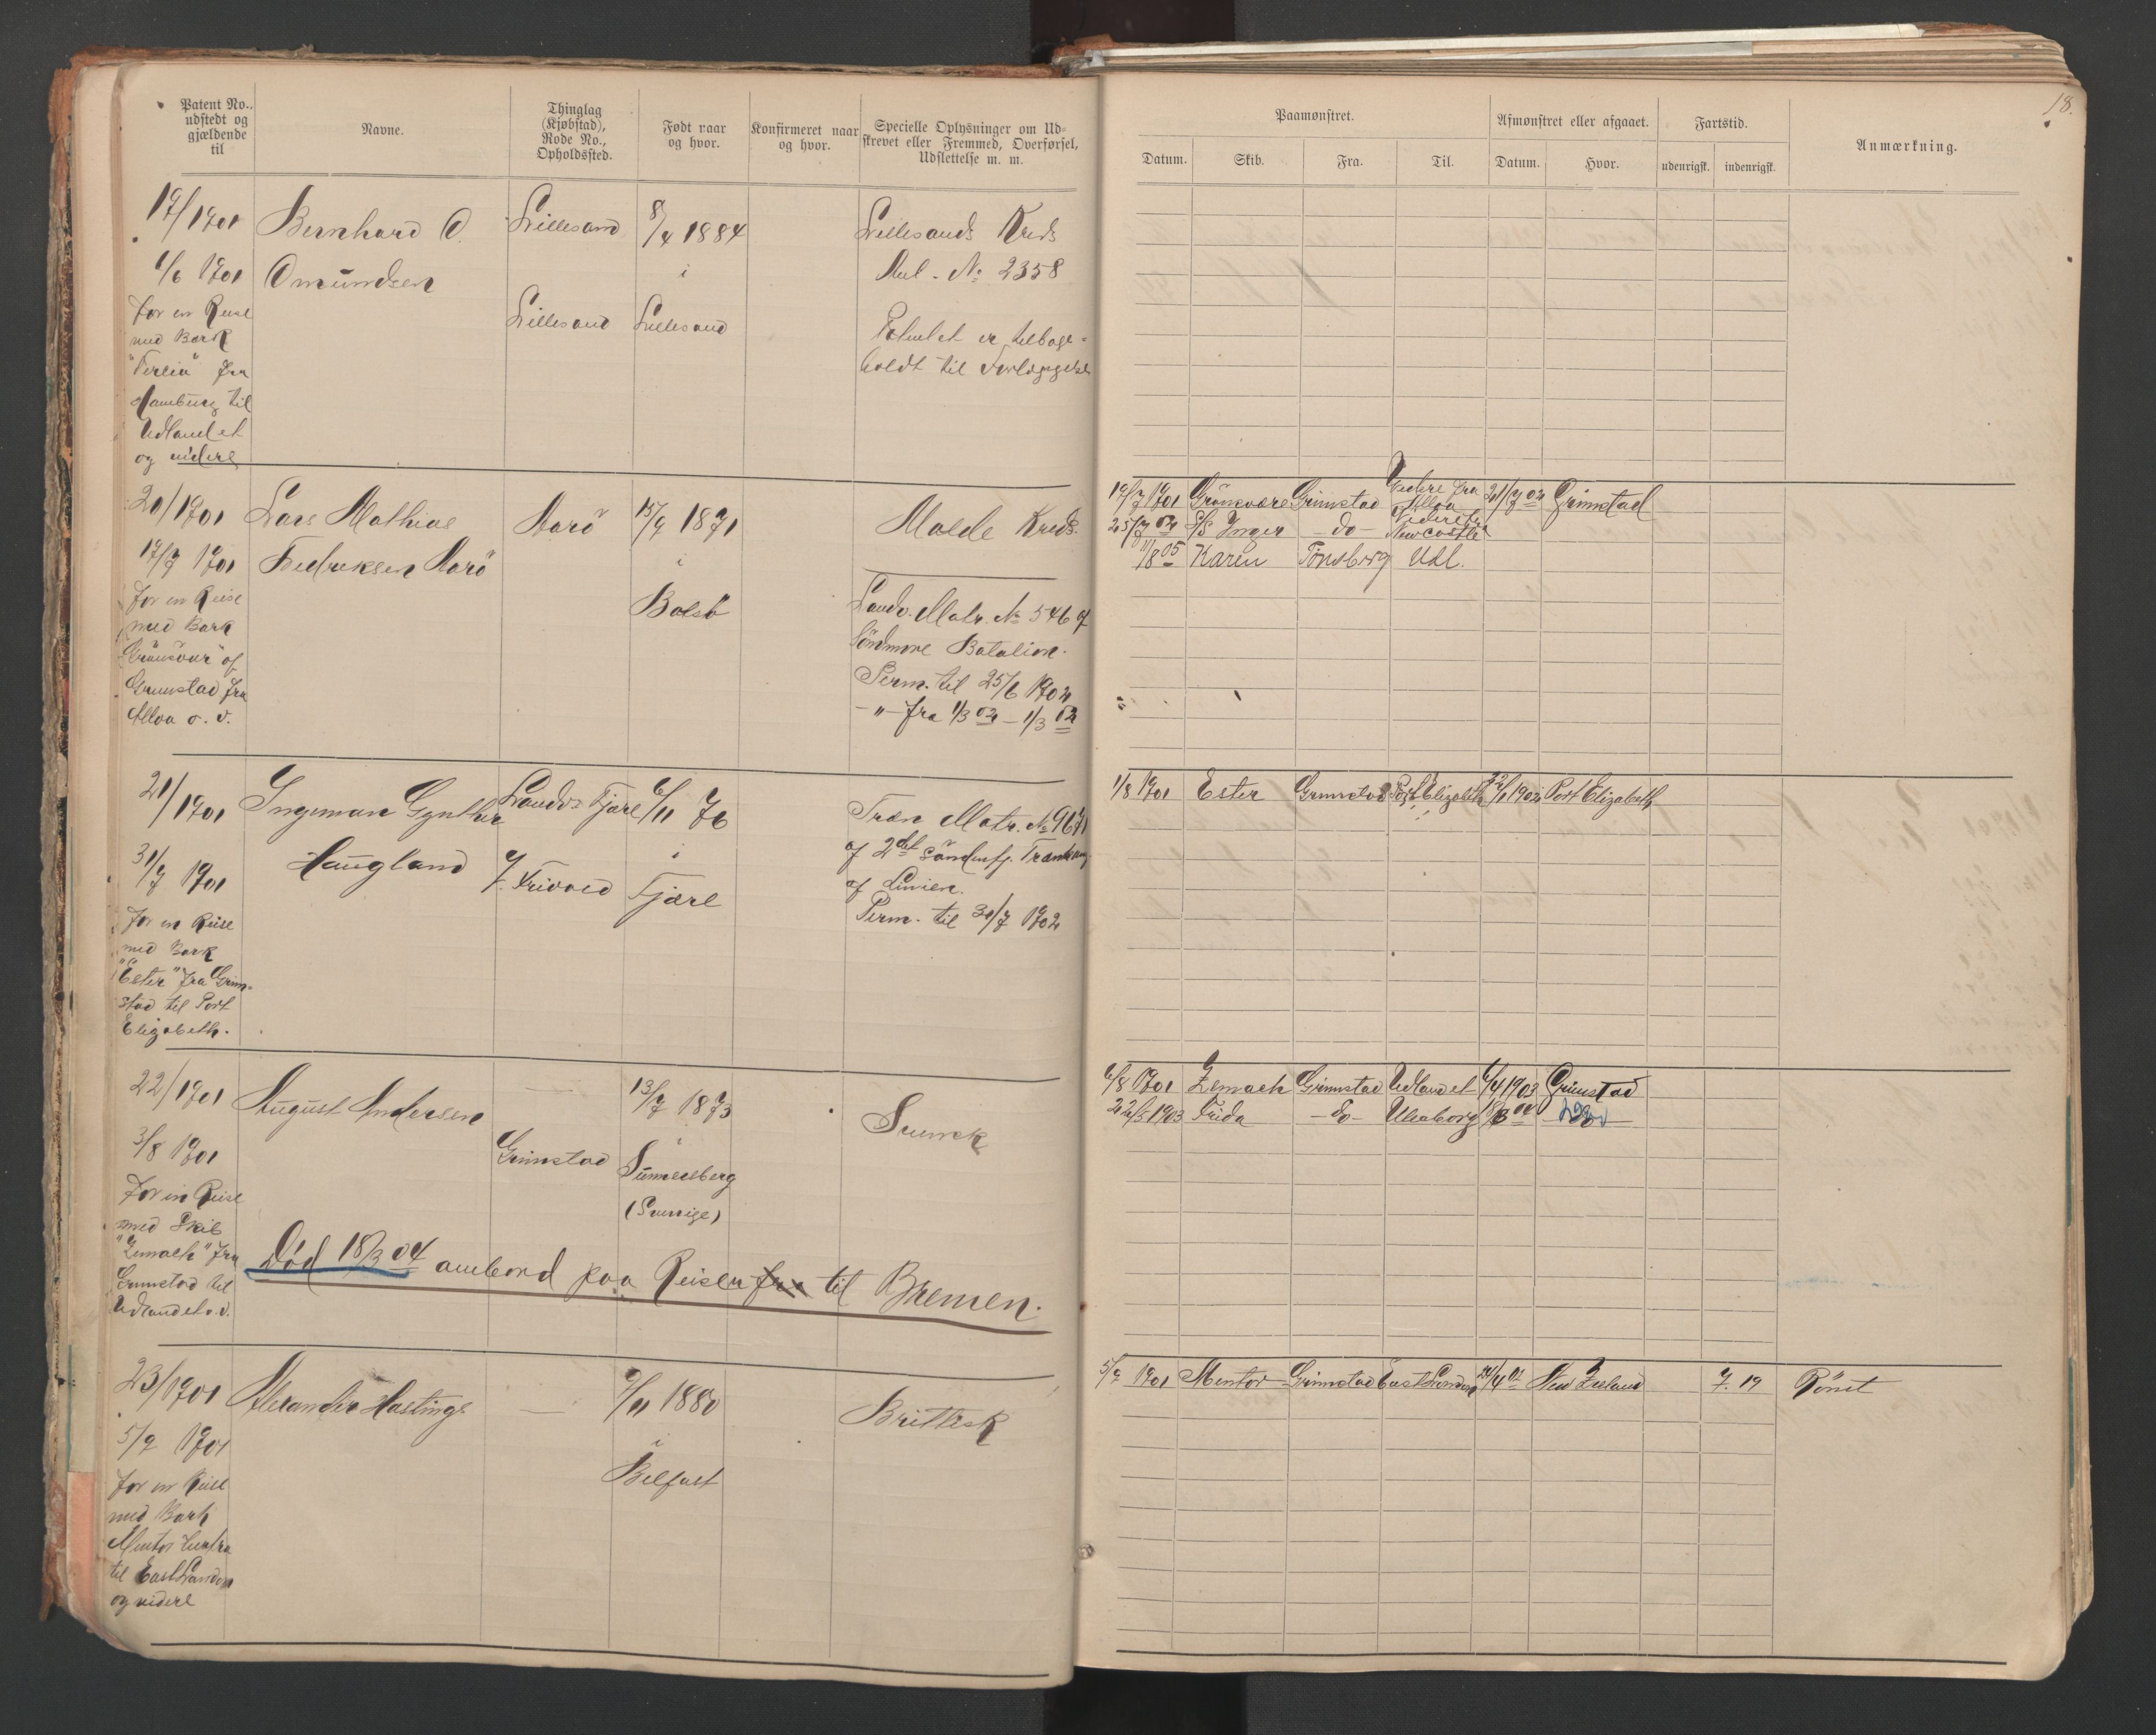 18.
Patent No.,
udstedt og
gjældende
til
Navne.
Thinglag
(Kjøbstad),
Rode No.,
Opholdssted.
Født naar
og hvor.
Konfirmeret naar
og hvor.
Specielle Oplysninger om Ud-
skrevet eller Fremmed, Overførsel,
Udslettelse m. m.
Paamønstret.
Datum.
Skib.
Fra.
Til.
Afmønstret eller afgaaet.
Datum.
Hvor.
Fartstid.
udenrigsk.
indenrigsk.
Anmærkning.
19/1901
1/6 1901
for en Reise
med Bark
fra
Hamburg til
Udlandet
og videre
Bernhard O.
Omundsen
Lillesand
Lillesand
8/4 1884
i
Lillesand
Lillesands Kreds
Rul. No 2358
Patentet er tilbage-
holdt til Forlæggelse
20/1901
17/7 1901
for en Reise
med Bark
"Grönsvær" af
Grimstad fra
Alloa o. v.
Lars Mathias
Fredriksen Aarö
Aarö
15/9 1871
i
Bolsö
Molde Kreds.
Landv. Matr. No 546 af
Söndmøre Batalion.
Perm. til 25/6 1902
-"- fra 1/3 02 - 1/3 03
17/7 1901 Grönsvære Grimstad Videre fra Alloa 21/7 02 Grimstad
25/7 02 S/S Inger -do- Videre fra Newcastle
11/8 05 Karen Tönsberg Udl.
21/1901
31/7 1901
for en Reise
med Bark
"Ester" fra Grim-
stad til Port
Elizabeth.
Ingeman Gynther
Haugland
Landv. Fjære
Frivold
6/11 76
i
Fjære
Træn Matr. No 967
af 2det Söndenfj. Trænkomp.
af Linien.
Perm. til 31/7 1902
1/8 1901 Ester Grimstad Port Elizabeth 22/1 1902 Port Elizabeth
22/1901
3/8 1901
for en Reise
med Skib
"Zemach" fra
Grimstad til
Udlandet o. v.
August Andersen
—
Grimstad
13/7 1873
i
Sunnersberg
(Sverige)
Svensk
Död 18/3 04 ombord paa Reisen fra til Bremen.
6/8 1901 Zemach Grimstad Udlandet 6/4 1903 Grimstad
22/5 1903 Frida -do- Uleaborg 18/3 04 Död
23/1901
5/9 1901
for en Reise
med Bark
Mentor herfra
til East London
og videre
Alexander Hastings
—
9/11 1880
i
Belfast
Brittisk
5/9 1901 Mentor Grimstad East London 24/4 02 New Zeland 7. 19 Römt